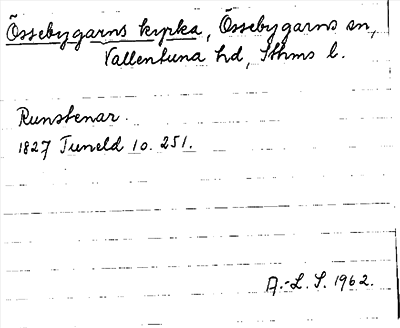 Össebygarns kyrka, Össebygarns sn,
Vallentuna hd, Sthms l.
Runstenar.
1827 Tuneld 10. 251.
A.-L. S. 1962.